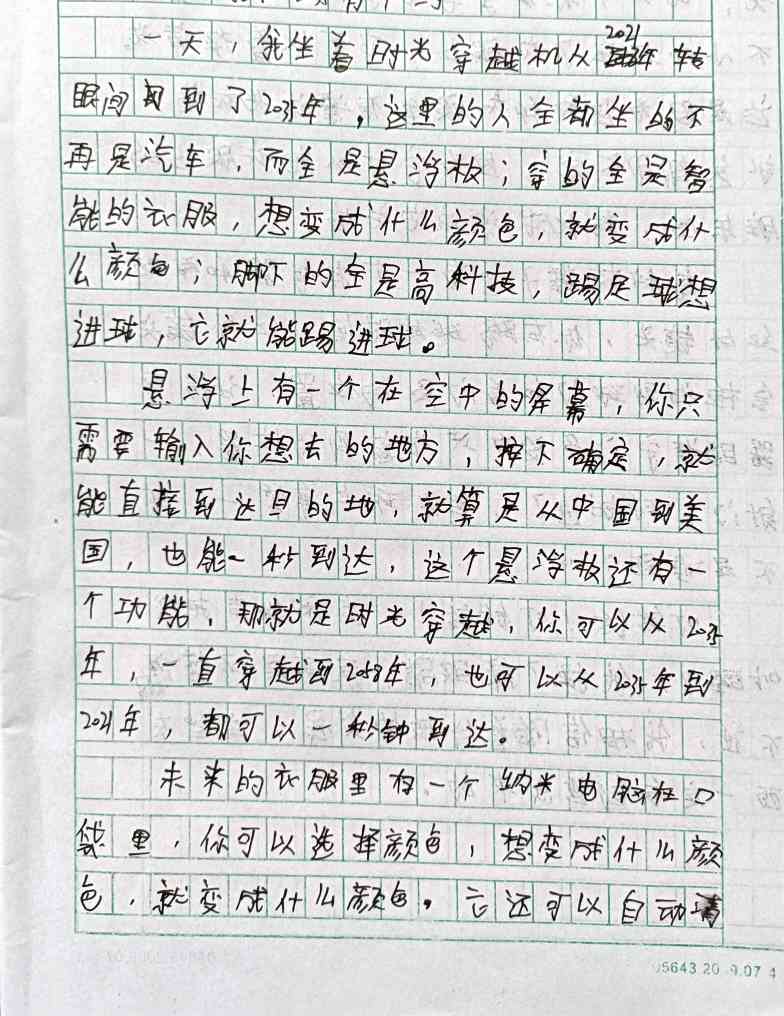 一天，我坐着时光穿越机从2021年转
眼间到了2035年，这里的人全都坐的不
再是汽车，而全是悬浮板；穿的全是智
能的衣服，想变成什么颜色，就变成什
么颜色；脚下的全是高科技，踢足球想
进球，它就能踢进球。
悬浮上有一个在空中的屏幕，你只
需要输入你想去的地方，按下确定，就
能直接到达目的地，就算是从中国到美
国，也能一秒到达，这个悬浮板还有一
个功能，那就是时光穿越，你可以从2035
年，一直穿越到2058年，也可以从2035年到
2021年，都可以一秒钟到达。
未来的衣服里有一个纳米电脑在口
袋里，你可以选择颜色，想变成什么颜
色，就变成什么颜色。它还可以自动清
05643 20 .07 4